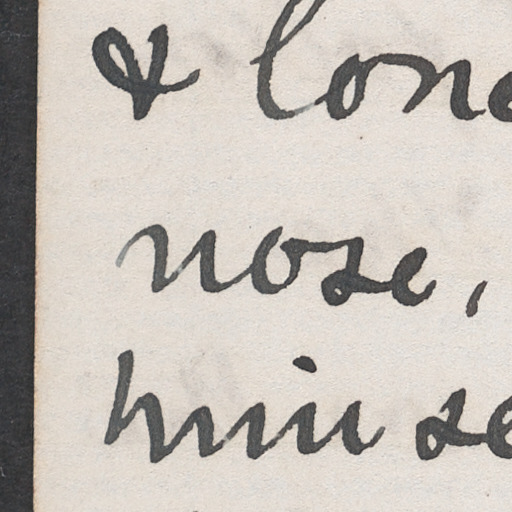 & lon
nose,
himse